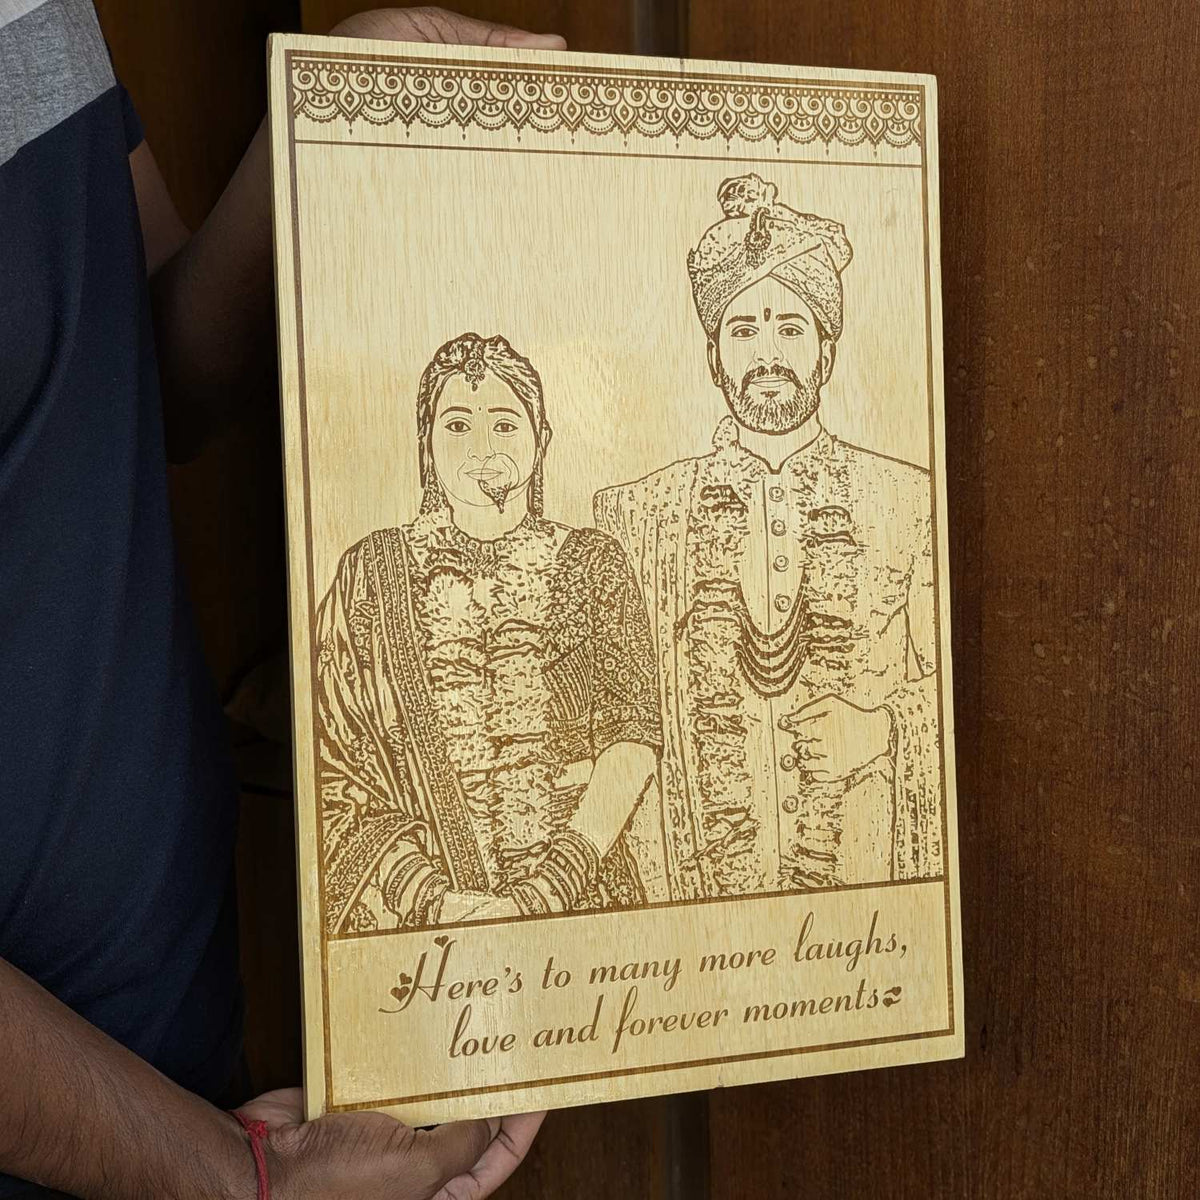 Here's to many more laughs,
love and forever moments